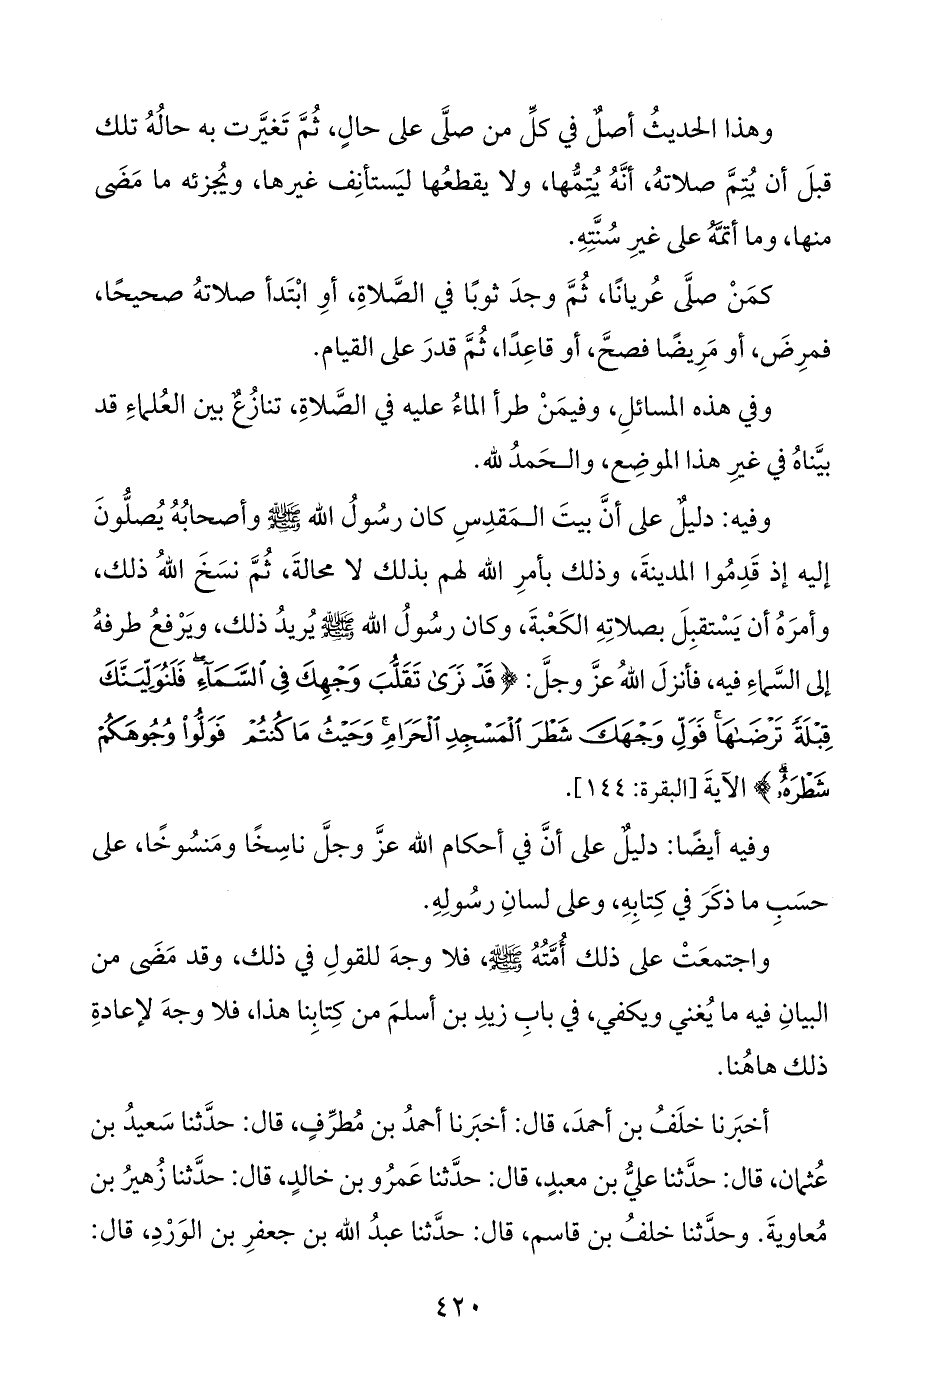 وهذا الحديثُ أصلٌ في كلِّ من صلَّى على حالٍ، ثُمَّ تَغيَّرت به حالُهُ تلك
قبلَ أن يُتِمَّ صلاتهُ، أنَّهُ يُتِمُّها، ولا يقطعُها ليَستأنِف غيرها، ويُجزئه ما مَضَى
منها، وما أتمَّهُ على غيرِ سُنَّتِهِ.
كمَنْ صلَّى عُريانًا، ثُمَّ وجدَ ثوبًا في الصَّلاةِ، أوِ ابْتَدأ صلاتهُ صحيحًا،
فمرِضَ، أو مَرِيضًا فصحَّ، أو قاعِدًا، ثُمَّ قدرَ على القيام.
وفي هذه المسائلِ، وفيمَنْ طرأ الماءُ عليه في الصَّلاةِ، تنازُعٌ بين العُلماءِ قد
بيَّناهُ في غيرِ هذا الموضِع، والـحَمدُ لله.
وفيه: دليلٌ على أنَّ بيتَ الـمَقدِسِ كان رسُولُ الله ﷺ وأصحابُهُ يُصلُّونَ
إليه إذ قَدِمُوا المدينةَ، وذلك بأمرِ الله لهم بذلك لا محالةَ، ثُمَّ نسَخَ اللهُ ذلك،
وأمرَهُ أن يَسْتقبِلَ بصلاتِهِ الكَعْبةَ، وكان رسُولُ الله ﷺ يُريدُ ذلك، ويَرْفعُ طرفهُ
إلى السَّماءِ فيه، فأنزلَ اللهُ عزَّ وجلَّ: ﴿قَدْ نَرَىٰ تَقَلُّبَ وَجْهِكَ فِي ٱلسَّمَآءِۖ فَلَنُوَلِّيَنَّكَ
قِبْلَةً تَرْضَىٰهَاۚ فَوَلِّ وَجْهَكَ شَطْرَ ٱلْمَسْجِدِ ٱلْحَرَامِۚ وَحَيْثُ مَا كُنتُمْ فَوَلُّوا۟ وُجُوهَكُمْ
شَطْرَهُۥۗ﴾ الآيةَ [البقرة: ١٤٤].
وفيه أيضًا: دليلٌ على أنَّ في أحكام الله عزَّ وجلَّ ناسِخًا ومَنسُوخًا، على
حسَبِ ما ذكَرَ في كِتابِهِ، وعلى لسانِ رسُولِهِ.
واجتمعَتْ على ذلك أُمَّتُهُ ﷺ، فلا وجهَ للقولِ في ذلك، وقد مَضَى من
البيانِ فيه ما يُغني ويكفي، في بابِ زيدِ بن أسلمَ من كِتابِنا هذا، فلا وجهَ لإعادةِ
ذلك هاهُنا.
أخبَرنا خلَفُ بن أحمدَ، قال: أخبَرنا أحمدُ بن مُطرِّفٍ، قال: حدَّثنا سَعيدُ بن
عُثمان، قال: حدَّثنا عليُّ بن معبدٍ، قال: حدَّثنا عَمرُو بن خالدٍ، قال: حدَّثنا زُهيرُ بن
مُعاويةَ. وحدَّثنا خلفُ بن قاسم، قال: حدَّثنا عبدُ الله بن جعفرِ بن الوَرْدِ، قال:
٤٢٠